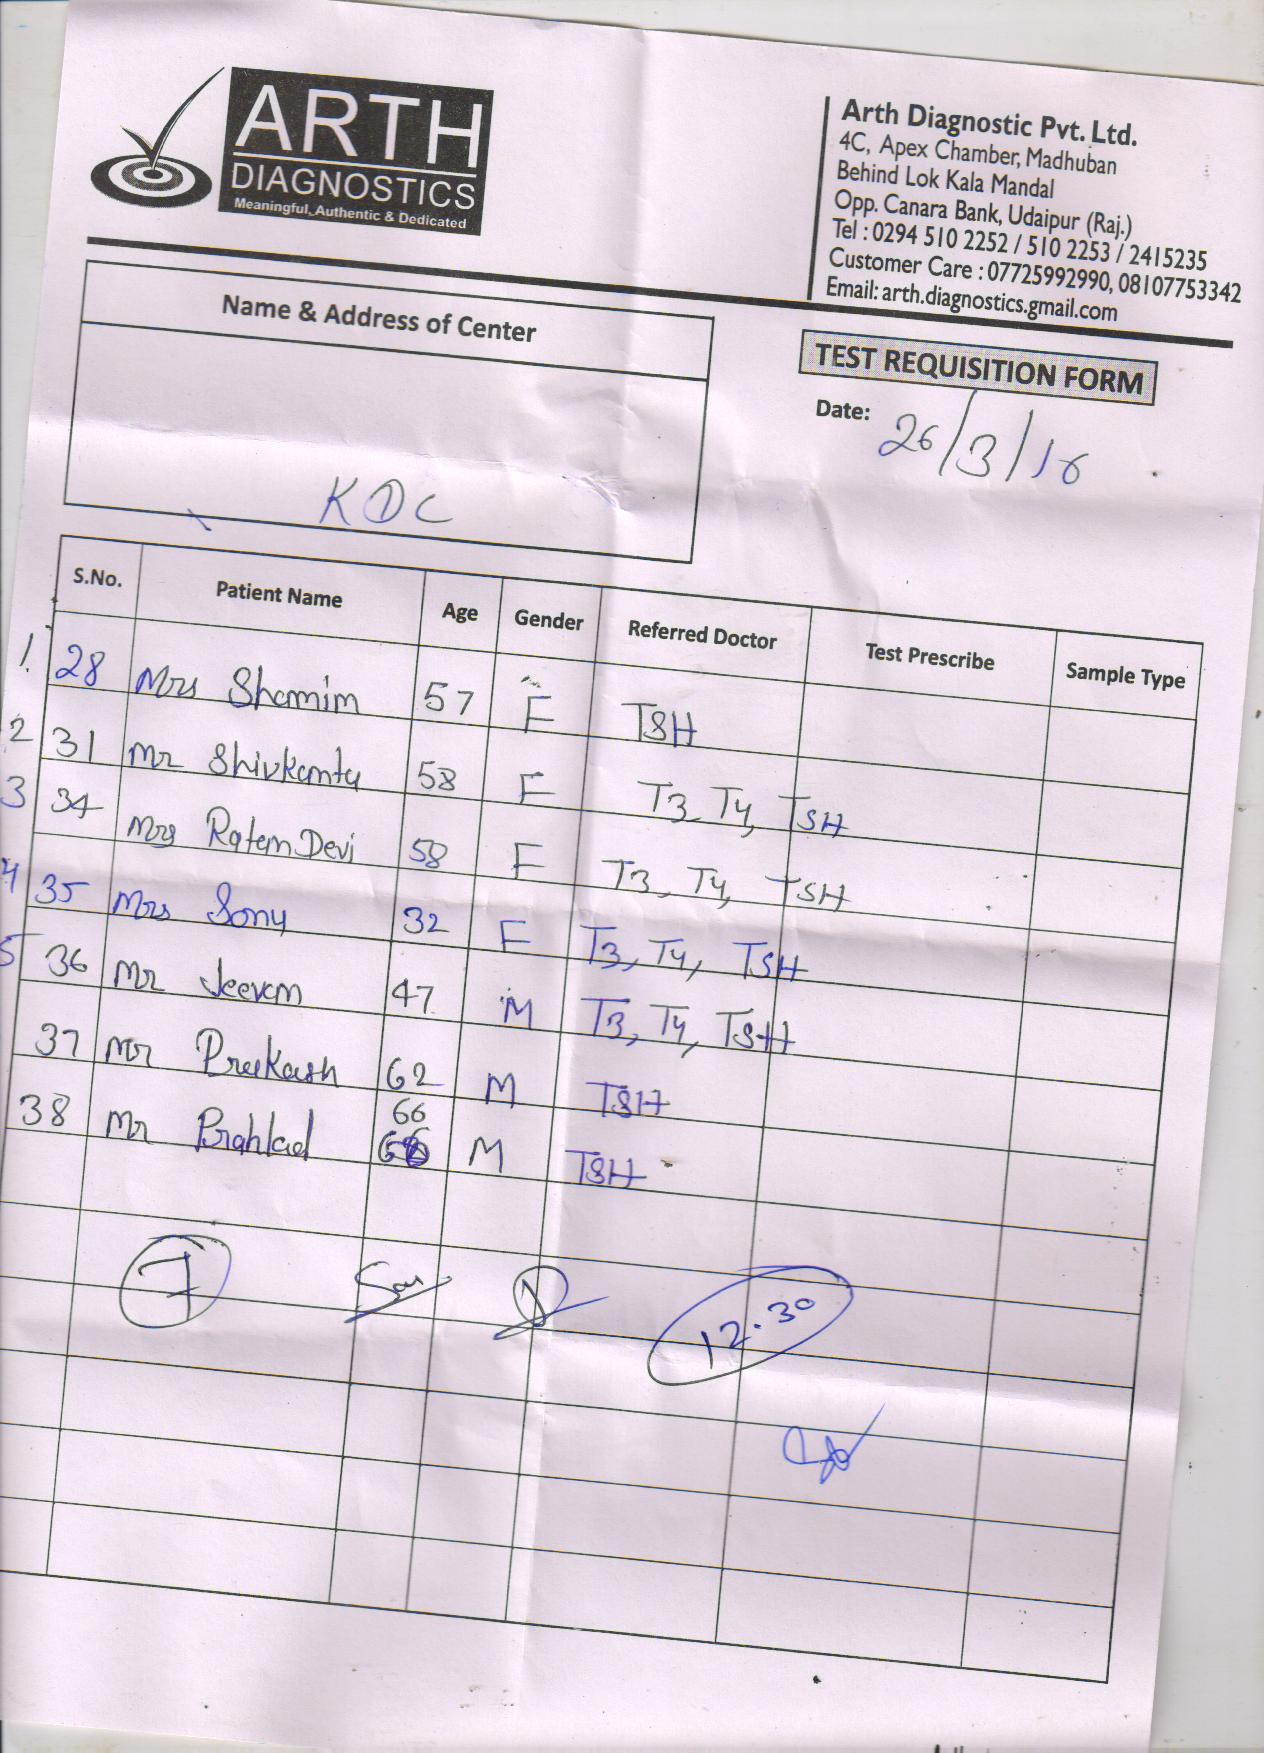 ARTH
DIAGNOSTICS
Meaningful, Authentic & Dedicated
Arth Diagnostic Pvt. Ltd.
4C, Apex Chamber, Madhuban
Behind Lok Kala Mandal
Opp. Canara Bank, Udaipur (Raj.)
Tel : 0294 510 2252 / 510 2253 / 2415235
Customer Care : 07725992990, 08107753342
Email: arth.diagnostics.gmail.com
Name & Address of Center
KDC
TEST REQUISITION FORM
Date: 26/3/16
S.No. Patient Name Age Gender Referred Doctor Test Prescribe Sample Type
1. 28 Mrs Shamim 57 F TSH
2 31 Mr Shivkanta 58 F T3, T4, TSH
3 34 Mrs Ratan Devi 58 F T3, T4, TSH
4 35 Mrs Sony 32 F T3, T4, TSH
5 36 Mr Jeevan 47 M T3, T4, TSH
37 Mr Prakash 62 M TSH
38 Mr Prahlad 66 M TSH
7 12.30